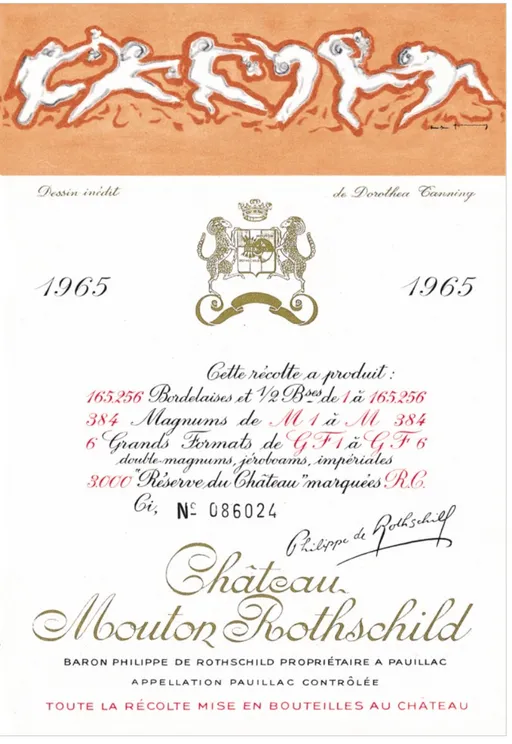 Dessin inédit
de Dorothea Tanning
1965
1965
Cette récolte a produit :
165.256 Bordelaises et 1/2 Bses de 1 à 165.256
384 Magnums de M 1 à M 384
6 Grands Formats de G F 1 à G F 6
double-magnums, jéroboams, impériales
3.000 "Réserve du Château" marquées R.C.
Ci, No 086024
Philippe de Rothschild
Château
Mouton Rothschild
BARON PHILIPPE DE ROTHSCHILD PROPRIÉTAIRE A PAUILLAC
APPELLATION PAUILLAC CONTRÔLÉE
TOUTE LA RÉCOLTE MISE EN BOUTEILLES AU CHÂTEAU